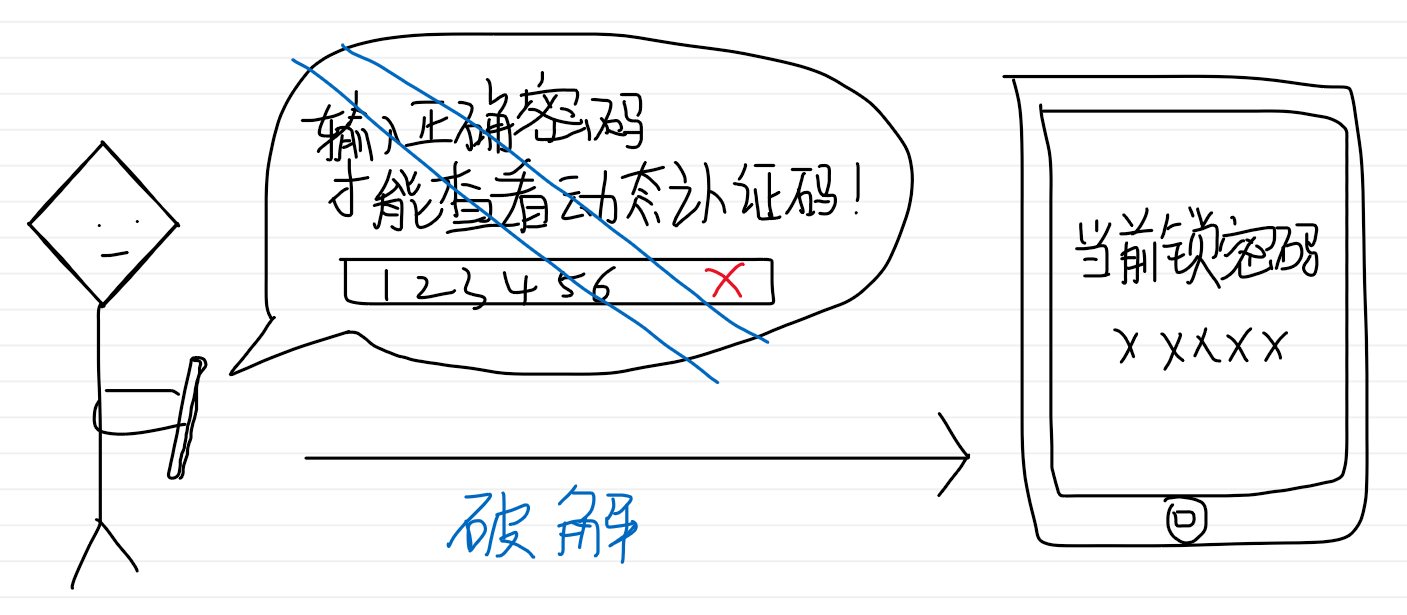 输入正确密码
才能查看动态认证码!
123456 X
破解
当前锁密码
xxxxx